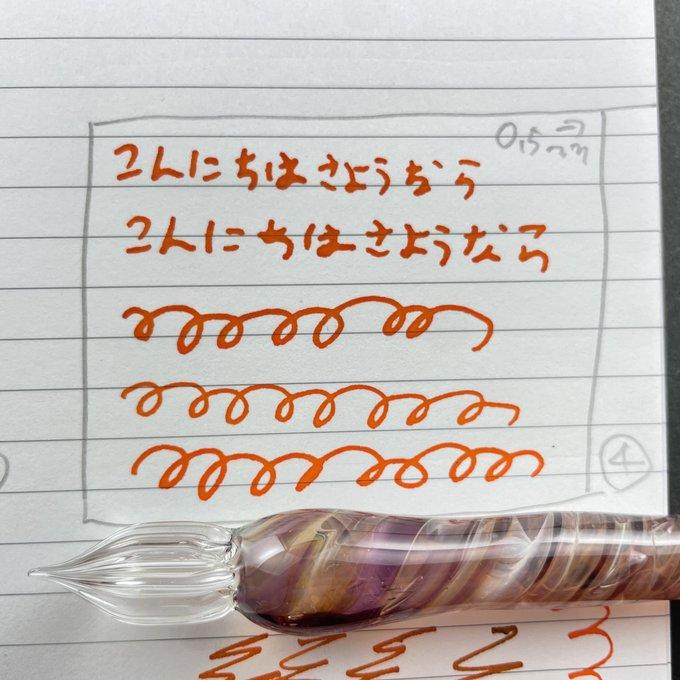 こんにちはさようなら
こんにちはさようなら
0.5mm
④